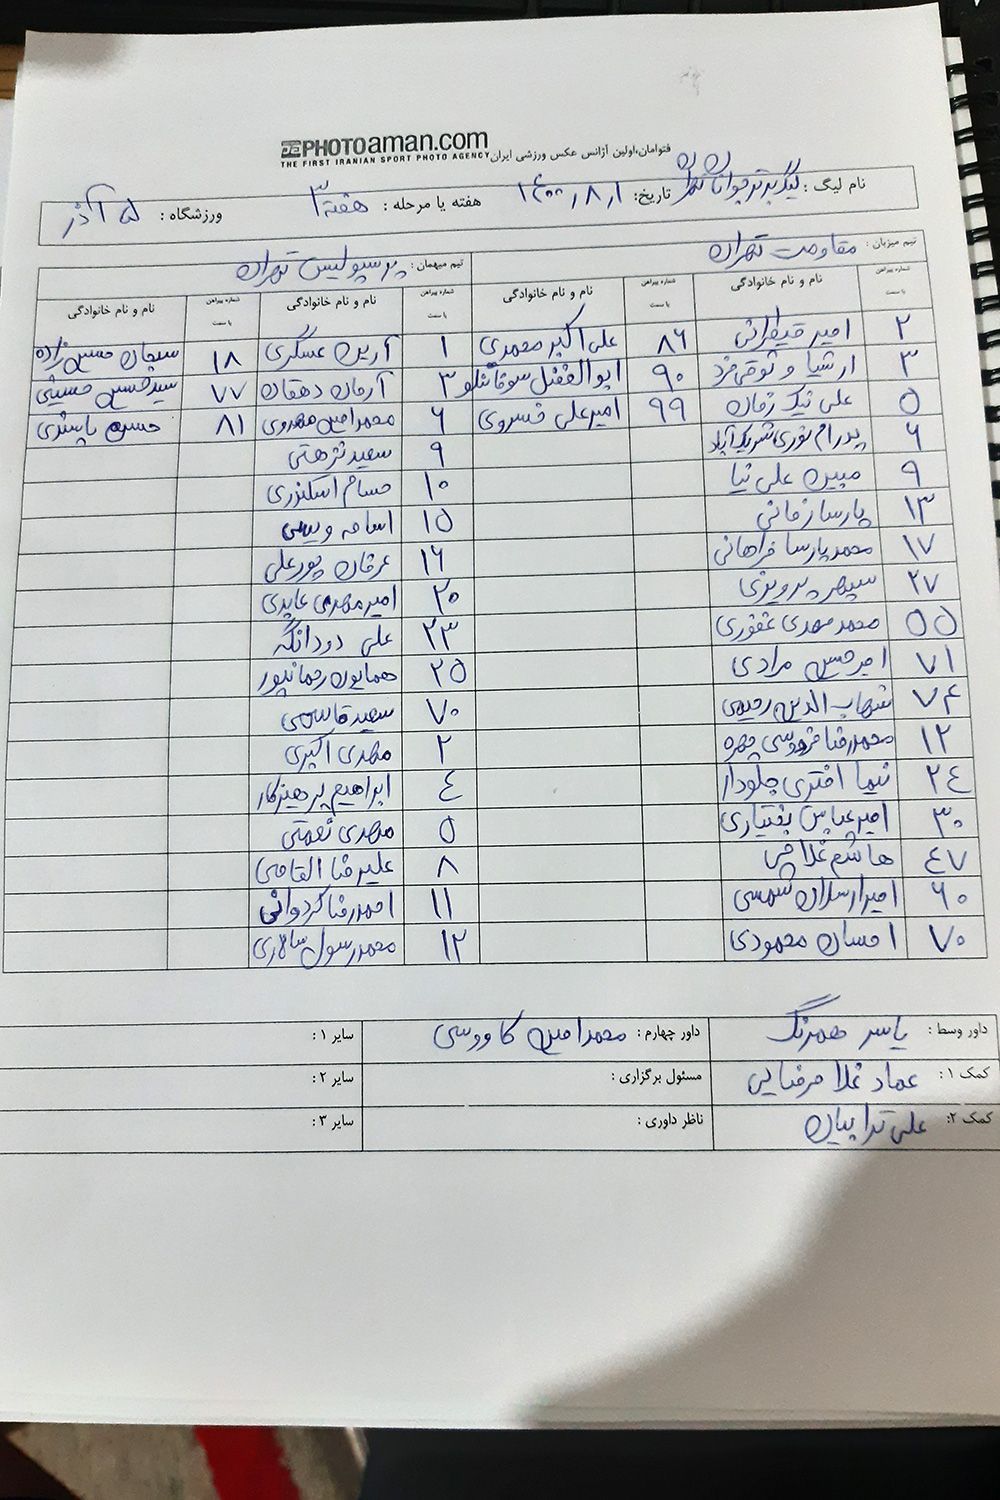 PHOTOaman.com
THE FIRST IRANIAN SPORT PHOTO AGENCY
فتوامان،اولین آژانس عکس ورزشی ایران
نام لیگ : لیگ برتر جوانان تهران تاریخ: ۱۴۰۰/۸/۱ هفته یا مرحله : هفته ۳ ورزشگاه : ۵ آذر
تیم میزبان : مقاومت تهران تیم میهمان : پرسپولیس تهران
شماره پیراهن یا سمت نام و نام خانوادگی شماره پیراهن یا سمت نام و نام خانوادگی شماره پیراهن یا سمت نام و نام خانوادگی شماره پیراهن یا سمت نام و نام خانوادگی
۲ امیر ۸۶ علی اکبر محمدی ۱ آرین عسگری ۱۸ سبحان حسین زاده
۳ ارشیا وثوقی فرد ۹۰ ابوالفضل سوقانلو ۳ آرمان دهقان ۷۷ سیدحسین حسینی
۵ علی نیک زمان ۹۹ امیرعلی خسروی ۶ محمدامین مهدوی ۸۱ حسین
۶ پدرام نوری شریک آباد ۹ سعید نزهتی
۹ مبین علی نیا ۱۰ حسام اسکندری
۱۳ پارسا زمانی ۱۵ اسامه ویسی
۱۷ محمد پارسا فراهانی ۱۶ عرفان پورعلی
۲۷ سپهر پرویزی ۲۰ امیرمهدی عابدی
۵۵ محمدمهدی غفوری ۲۳ علی دودانگه
۷۱ امیرحسین مرادی ۲۵ همایون رحمانپور
۷۴ شهاب الدین رحیمی ۷۰ سعید قاسمی
۱۲ محمدرضا فردوسی چهره ۲ مهدی اکبری
۲۴ نیما اختری جلودار ۴ ابراهیم پرهیزکار
۳۰ امیرعباس بختیاری ۵ مهدی نعمتی
۴۷ هاشم غلامی ۸ علیرضا القاصی
۶۰ امیرارسلان شمسی ۱۱ احمدرضا کردوانی
۷۰ احسان محمودی ۱۲ محمدرسول سالاری
داور وسط : یاسر همرنگ داور چهارم : محمدامین کاووسی سایر ۱ :
کمک ۱ : عماد غلامرضایی مسئول برگزاری : سایر ۲ :
کمک ۲: علی ترابیان ناظر داوری : سایر ۳ :